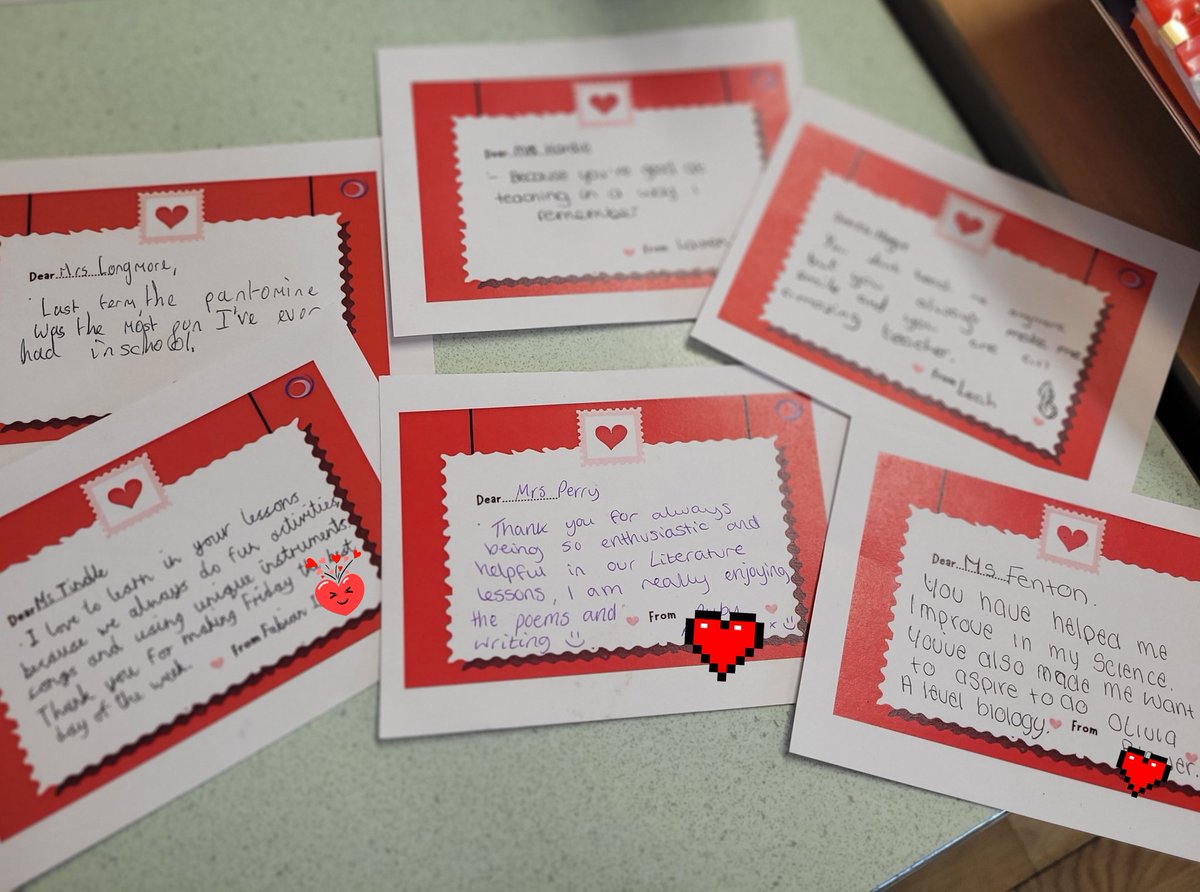 Dear Mrs Longmore,
Last term, the pantomine
was the most fun I've ever
had in school.
Dear
- Because you're good at
teaching in a way I
remember
From Lauren
You don't teach me anymore
but you always make me
smile and you are an
amazing teacher.
From Leah
Dear Ms Tindle
I love to learn in your lessons
because we always do fun activities,
songs and using unique instruments.
Thank you for making Friday the best
day of the week.
From Fabian
Dear Mrs Perry
Thank you for always
being so enthusiastic and
helpful in our Literature
lessons, I am really enjoying
the poems and
writing
From Ruby
x
Dear Ms Fenton.
You have helped me
Improve in my science.
Youve also made me want
to aspire to do
A level biology.
From Olivia